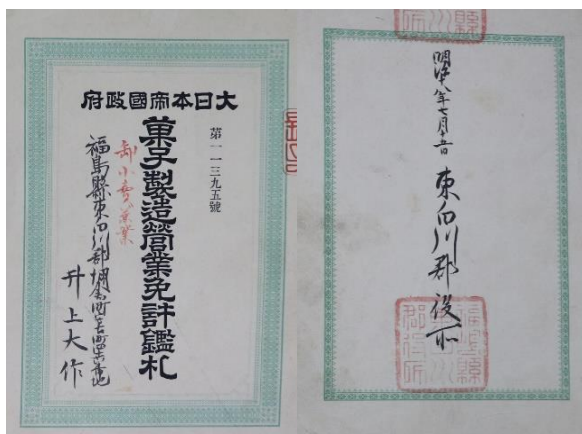 大日本帝國政府
第一一三九五號
菓子製造營業免許鑑札
卸小賣兼業
福島縣東白川郡棚倉町
井上大作
明治十八年七月
東白川郡役所
福島縣東白川郡役所